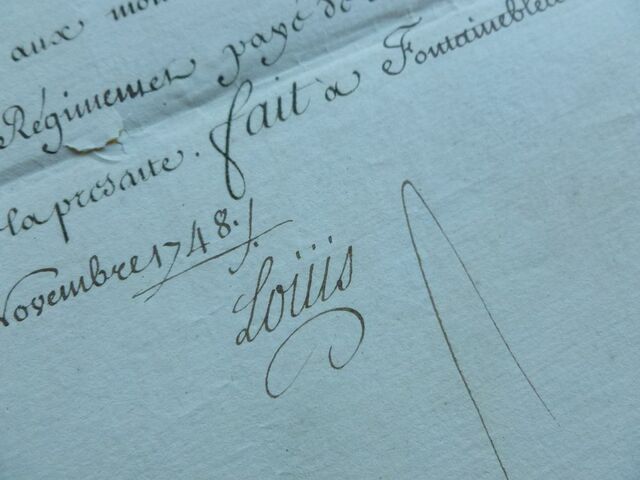 aux mon
Régiment payé de
la presente. fait à Fontaineble
Novembre 1748.
Louis